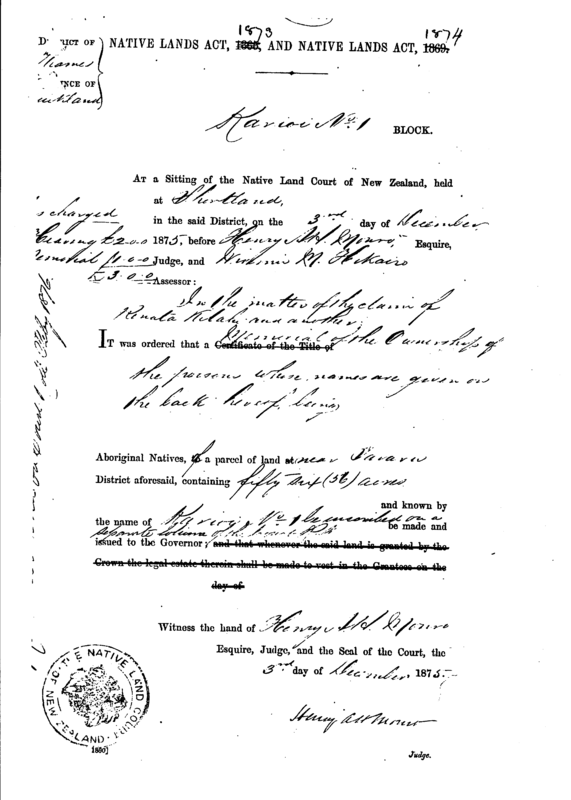 1873 1874
D    ICT OF NATIVE LANDS ACT, 1865, AND NATIVE LANDS ACT, 1869.
Thames
NCE OF
Auckland
Karioi No. 1 BLOCK.
AT a Sitting of the Native Land Court of New Zealand, held
at Shortland,
in the said District, on the 3rd day of December
charged
Hearing £2.0.0 1875, before Henry A.H. Monro, Esquire,
Memorial 1.0.0 Judge, and Hikairo
£3.0.0 Assessor:
In the matter of the claim of
Renata and another
Memorial of the Ownership of
IT was ordered that a Certificate of the Title of
the persons whose names are given on
the back hereof, being
Aboriginal Natives, of a parcel of land at near Tararu
District aforesaid, containing fifty six (56) acres
and known by
the name of Karioi No 1 be inscribed on a be made and
separate column of the Court Rolls
issued to the Governor; and that whenever the said land is granted by the
Crown the legal estate therein shall be made to vest in the Grantees on the
day of
Witness the hand of Henry A.H. Monro
Esquire, Judge, and the Seal of the Court, the
3rd day of December 1875.
Henry A H Monro
Judge.
OF THE NATIVE LAND COURT OF NEW ZEALAND